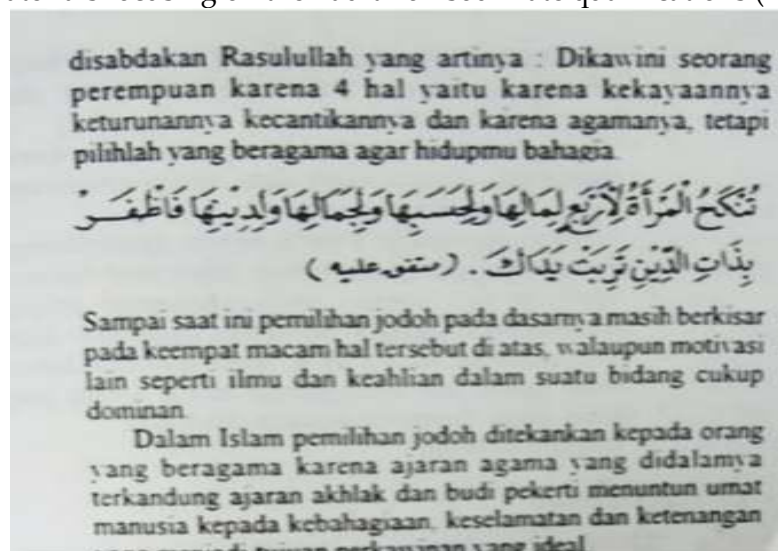 disabdakan Rasulullah yang artinya : Dikawini seorang
perempuan karena 4 hal yaitu karena kekayaannya
keturunannya kecantikannya dan karena agamanya, tetapi
pilihlah yang beragama agar hidupmu bahagia.
تُنْكَحُ الْمَرْأَةُ لِأَرْبَعٍ لِمَالِهَا وَلِحَسَبِهَا وَلِجَمَالِهَا وَلِدِيْنِهَا فَاظْفَرْ
بِذَاتِ الدِّيْنِ تَرِبَتْ يَدَاكَ . (متفق عليه)
Sampai saat ini pemilihan jodoh pada dasarnya masih berkisar
pada keempat macam hal tersebut di atas, walaupun motivasi
lain seperti ilmu dan keahlian dalam suatu bidang cukup
dominan.
Dalam Islam pemilihan jodoh ditekankan kepada orang
yang beragama karena ajaran agama yang didalamya
terkandung ajaran akhlak dan budi pekerti menuntun umat
manusia kepada kebahagiaan, keselamatan dan ketenangan